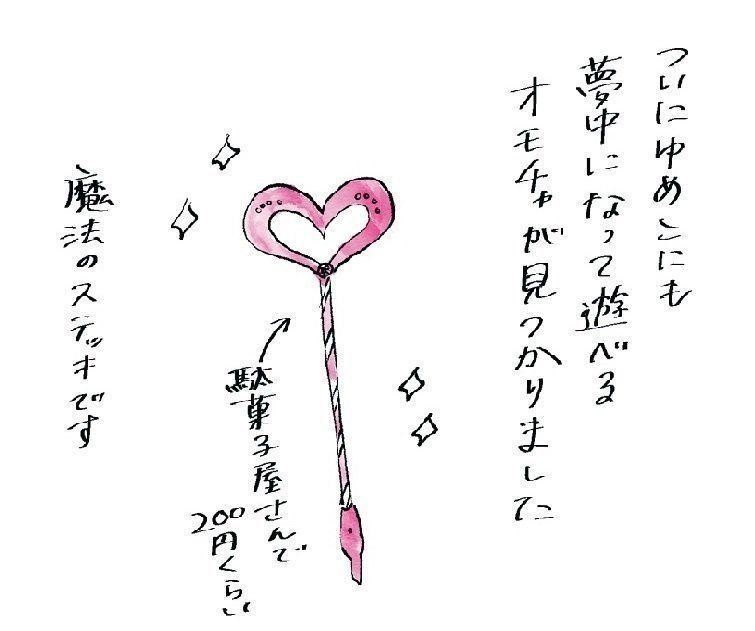 ついにゆめこにも
夢中になって遊べる
オモチャが見つかりました
駄菓子屋さんで
200円くらい
魔法のステッキです